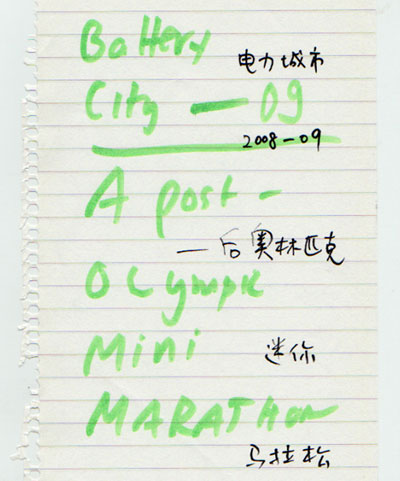 Battery
电力城市
City — 09
2008-09
A post -
—后奥林匹克
OLympic
Mini
迷你
MARATHon
马拉松